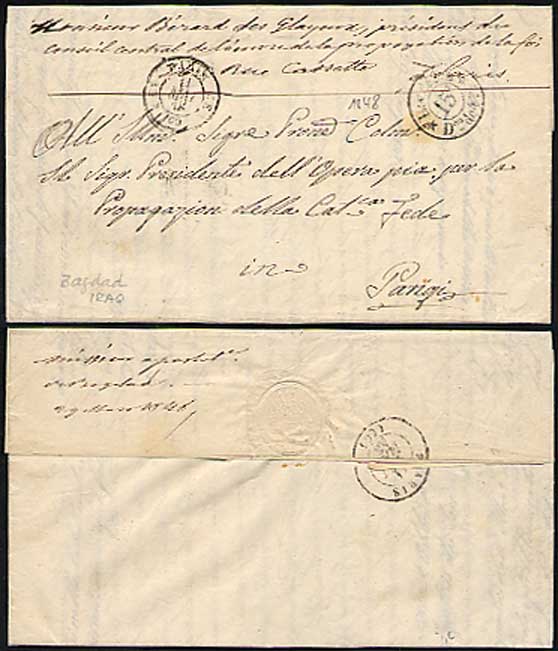 Monsieur Bérard des Glajeux, président du
conseil central de l'œuvre de la propagation de la foi
Rue Cassette, Paris
PARIS
1848
All' Illmo. Sigre Prone Colmo.
Il Sigr. Presidente dell'Opera pia, per la
Propagazion della Catca Fede
in
Parigi
Bagdad
IRAQ
mission apostol
de Bagdad
PARIS